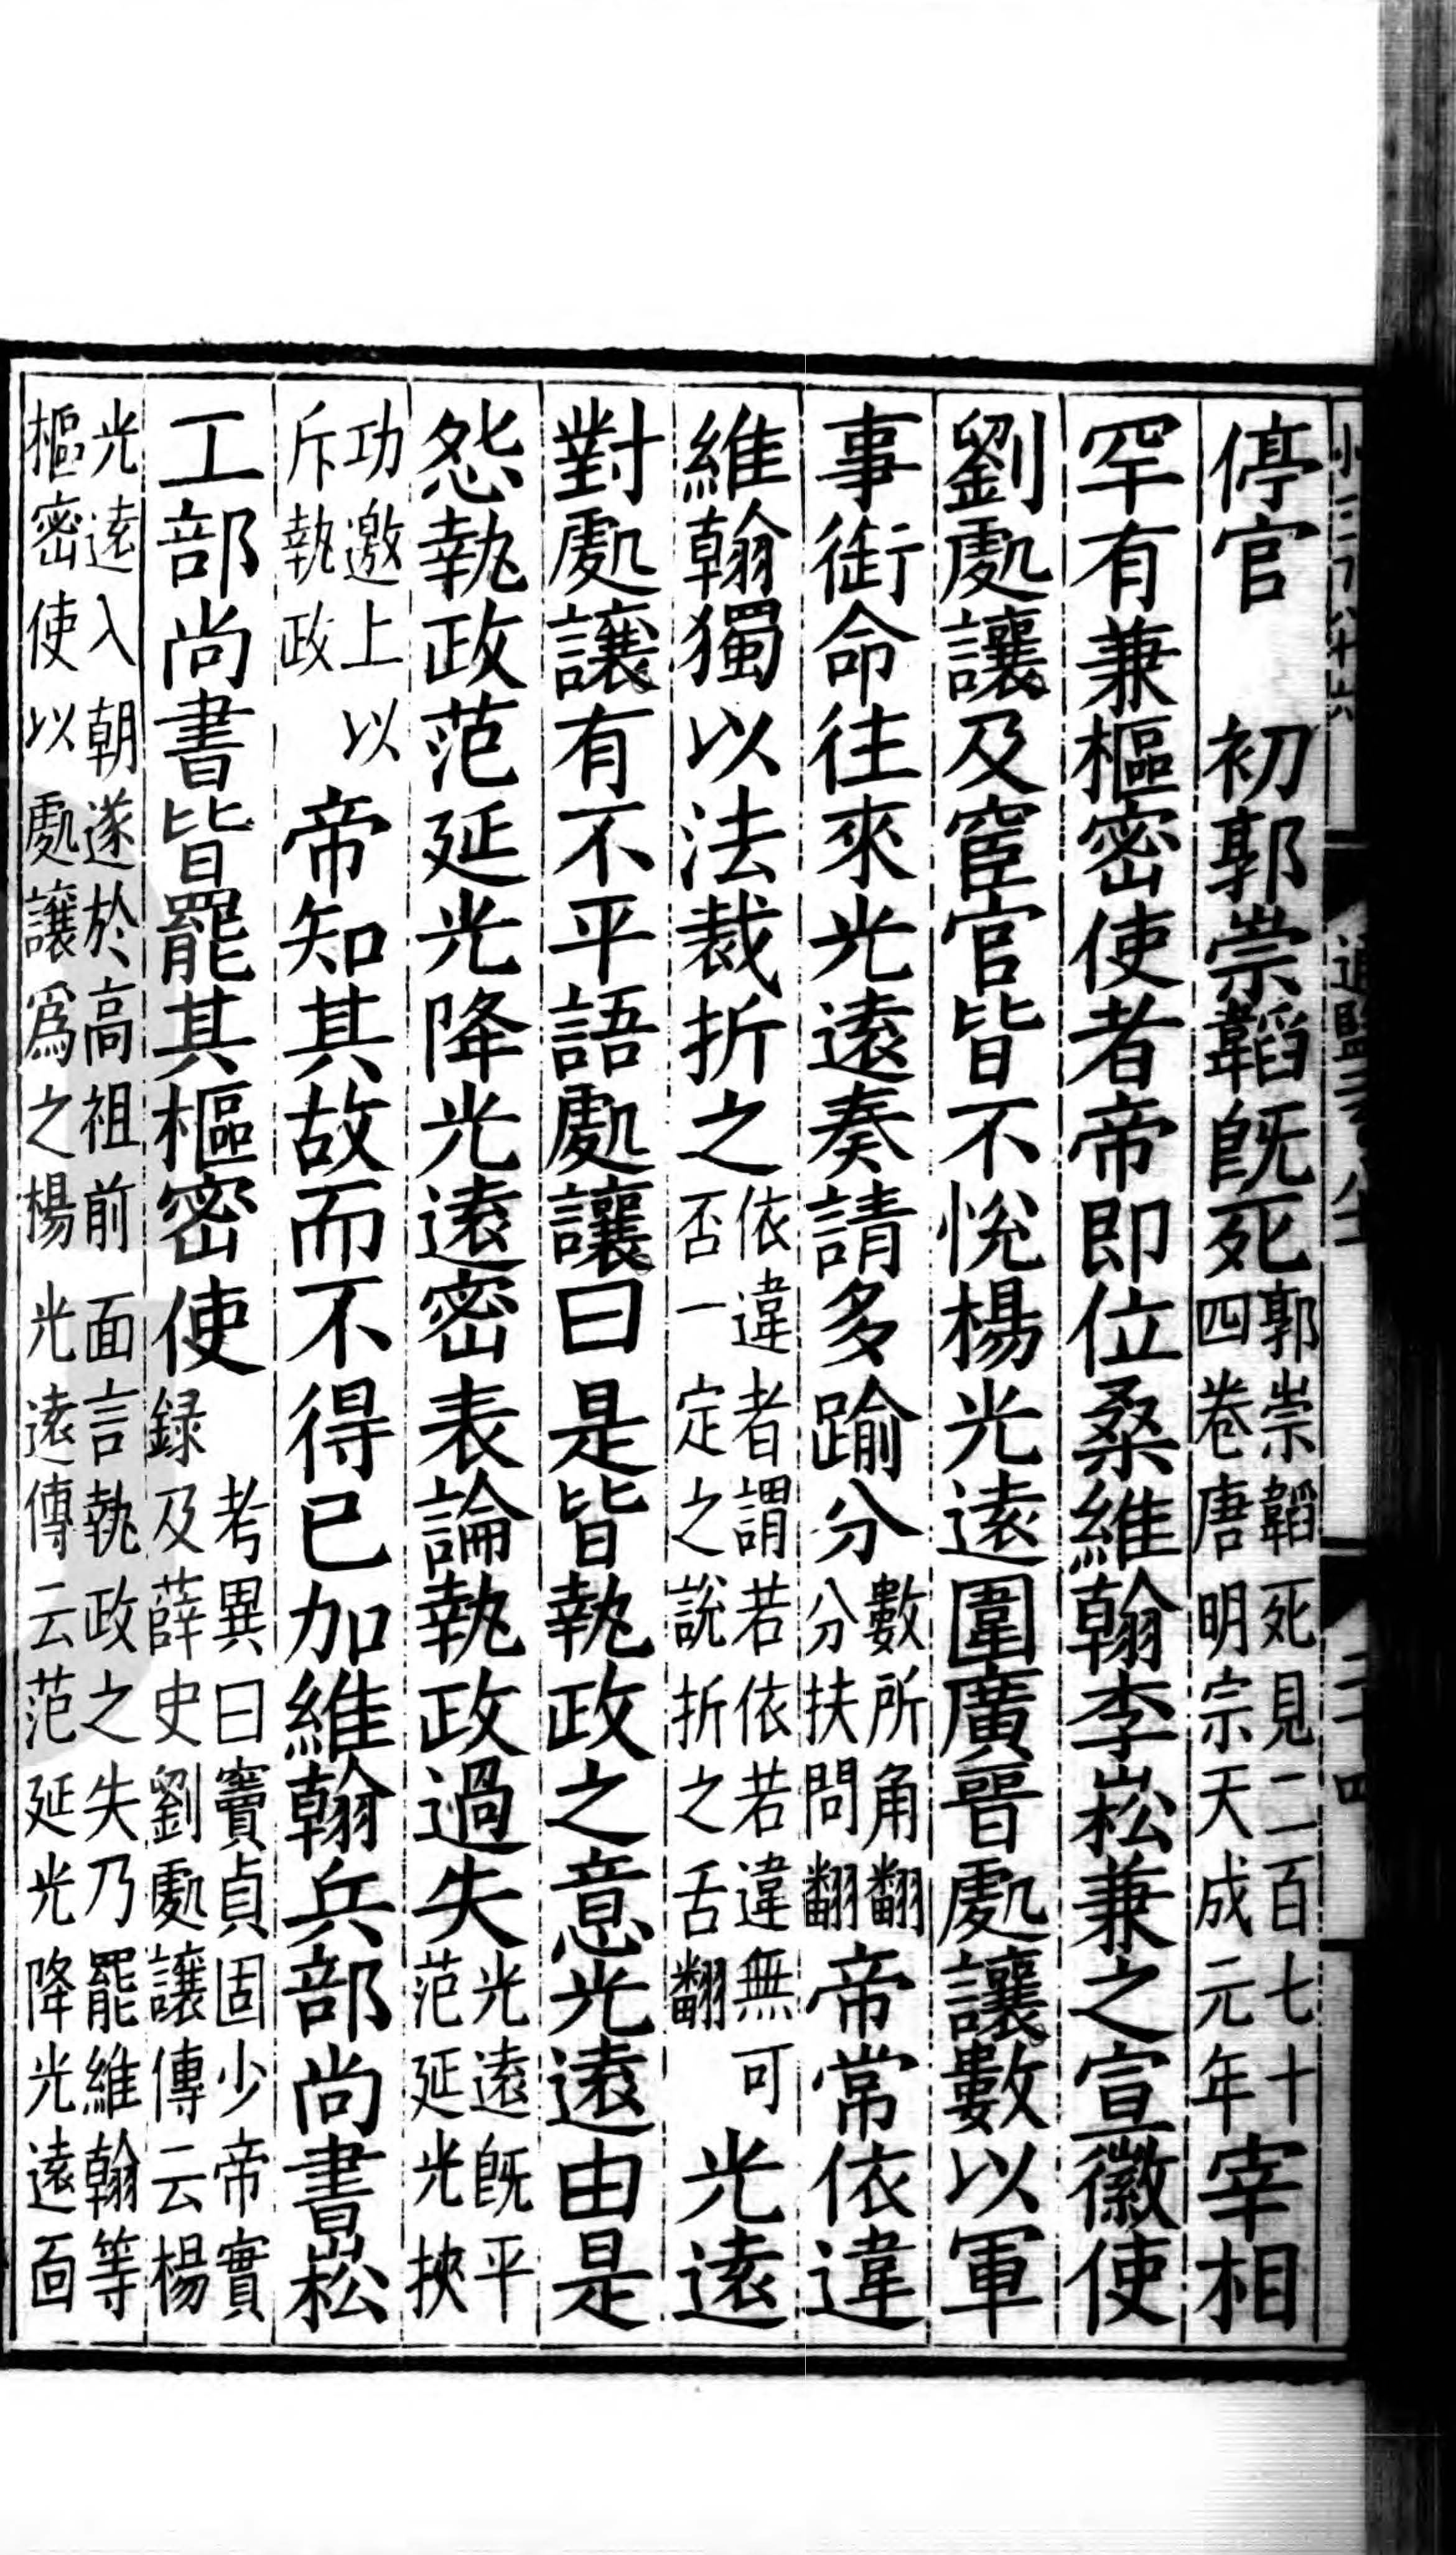 停官　初郭崇韜旣死郭崇韜死見二百七十四卷唐明宗天成元年宰相
罕有兼樞密使者帝即位桑維翰李崧兼之宣徽使
劉處讓及宦官皆不悅楊光遠圍廣晉處讓數以軍
事銜命往來光遠奏請多踰分數所角翻分扶問翻帝常依違
維翰獨以法裁折之依違者謂若依若違無可否一定之說折之舌翻光遠
對處讓有不平語處讓曰是皆執政之意光遠由是
怨執政范延光降光遠密表論執政過失光遠旣平范延光挾
功邀上以斥執政帝知其故而不得已加維翰兵部尚書崧
工部尚書皆罷其樞密使考異曰竇貞固少帝實録及薛史劉處讓傳云楊
光遠入朝遂於高祖前面言執政之失乃罷維翰等樞密使以處讓爲之楊光遠傳云范延光降光遠面